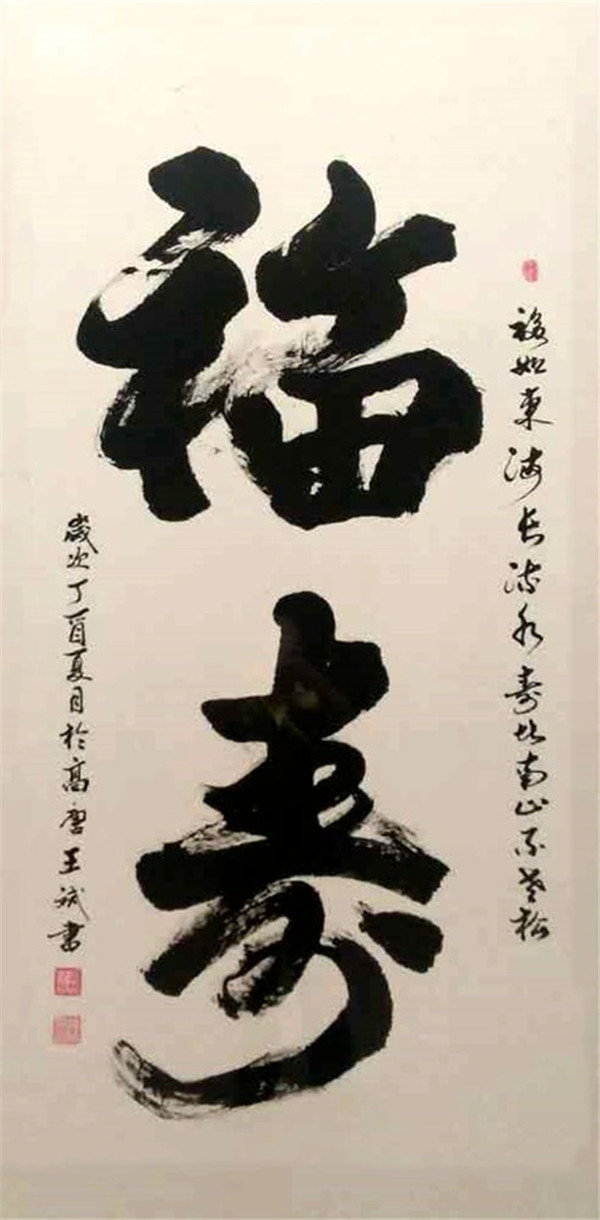 福如东海长流水寿比南山不老松
福寿
歲次丁酉夏月於高唐王斌書